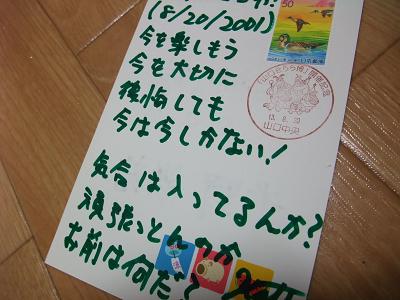 (8/20/2001)
50
今を楽しもう
今を大切に
後悔しても
今は今しかない!
13.8.20
山口中央
気合は入ってるんか?
頑張っとんのか
お前は何だ?